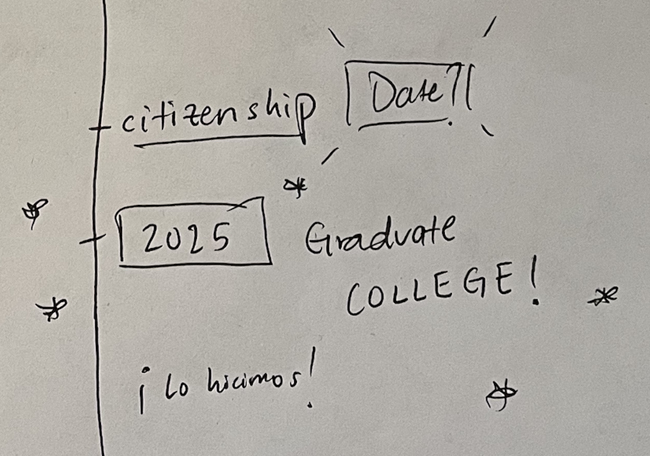 citizenship Date?
2025 Graduate
COLLEGE!
¡Lo hicimos!